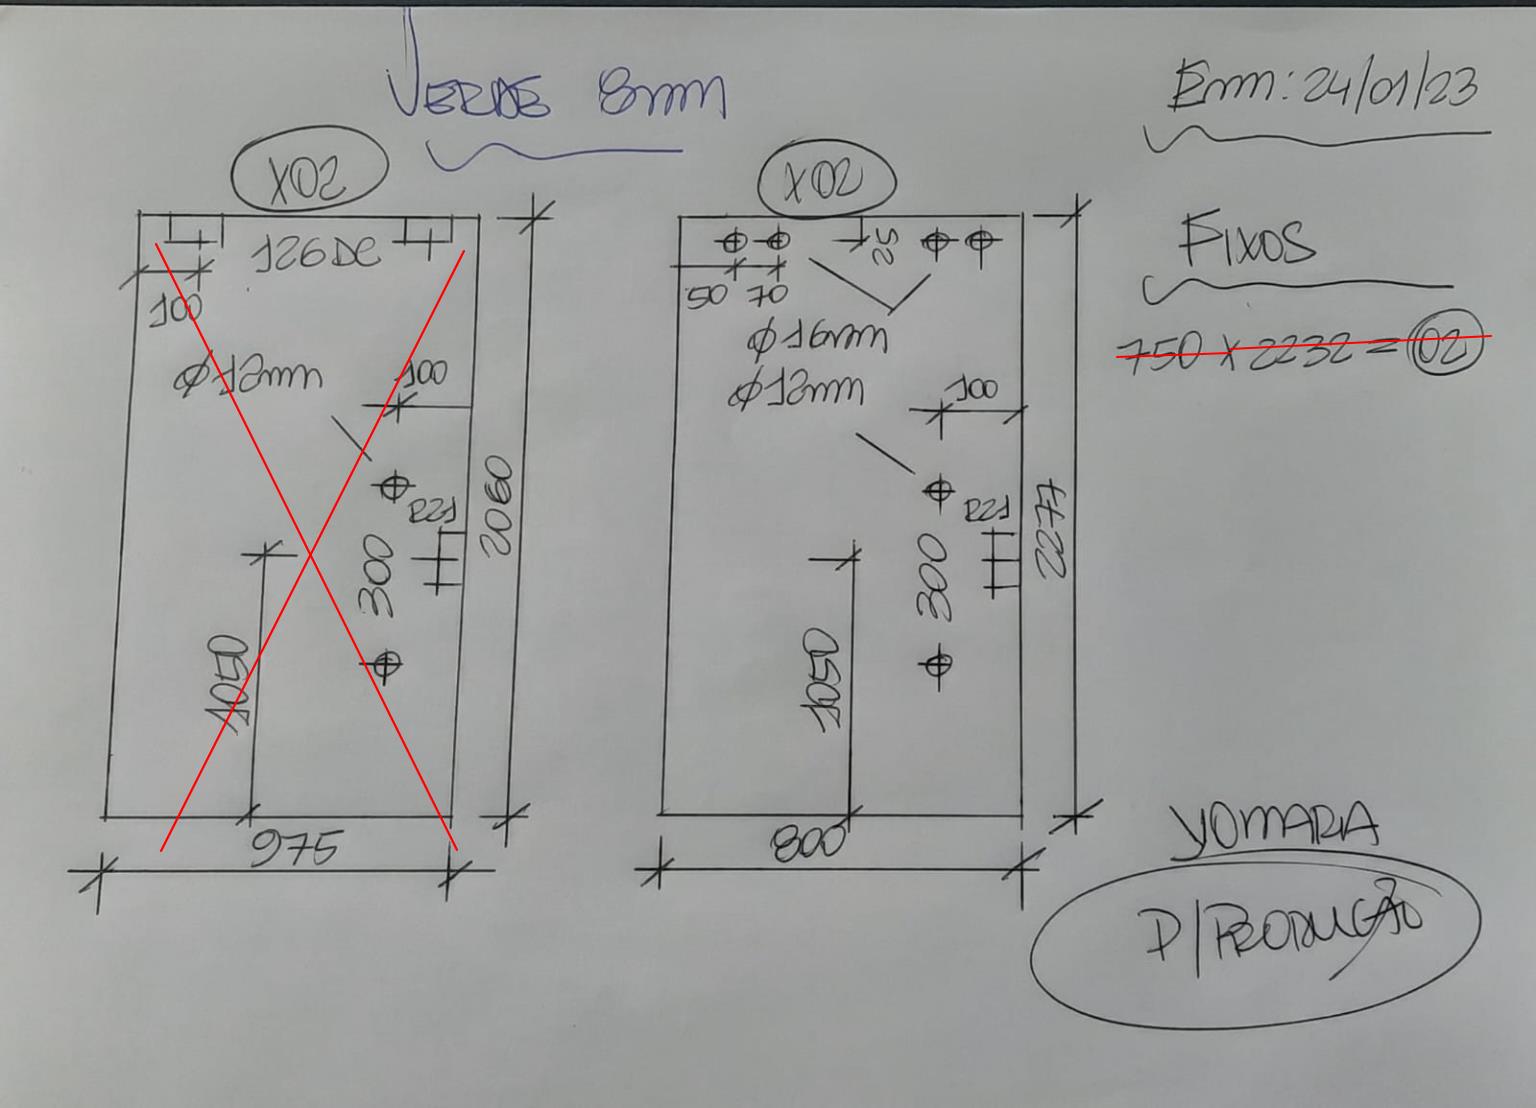 VERDE 8mm
Em: 24/01/23
X02
126DC
100
Ø12mm
100
R21
300
1050
2060
975
X02
25
50 70
Ø16mm
Ø12mm
100
R21
300
1050
2277
800
FIXOS
750 X 2232 = 02
YOMARA
P/PRODUÇÃO